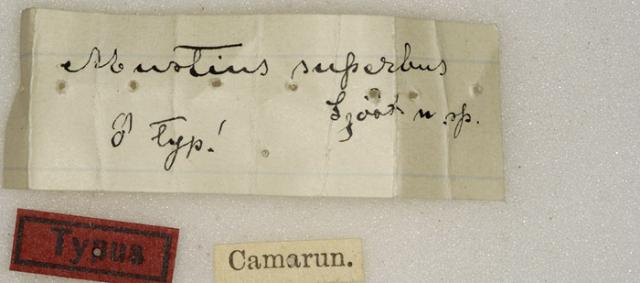 Mustius superbus
Sjöst n. sp.
♂ Typ!
Typus
Camarun.